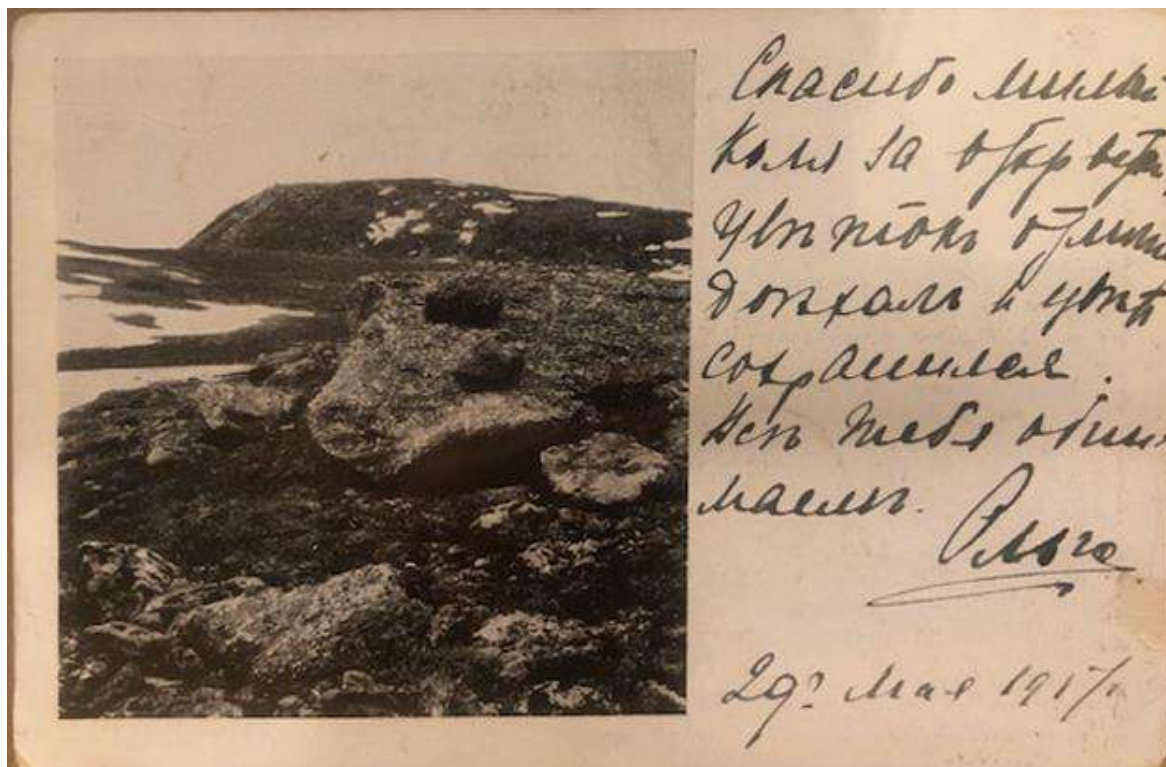 Спасибо милый
Коля за
Цвѣтокъ отлич
доѣхалъ и цвѣт
сохранился.
Всѣ тебя обни
маемъ.
Ольга
29го Мая